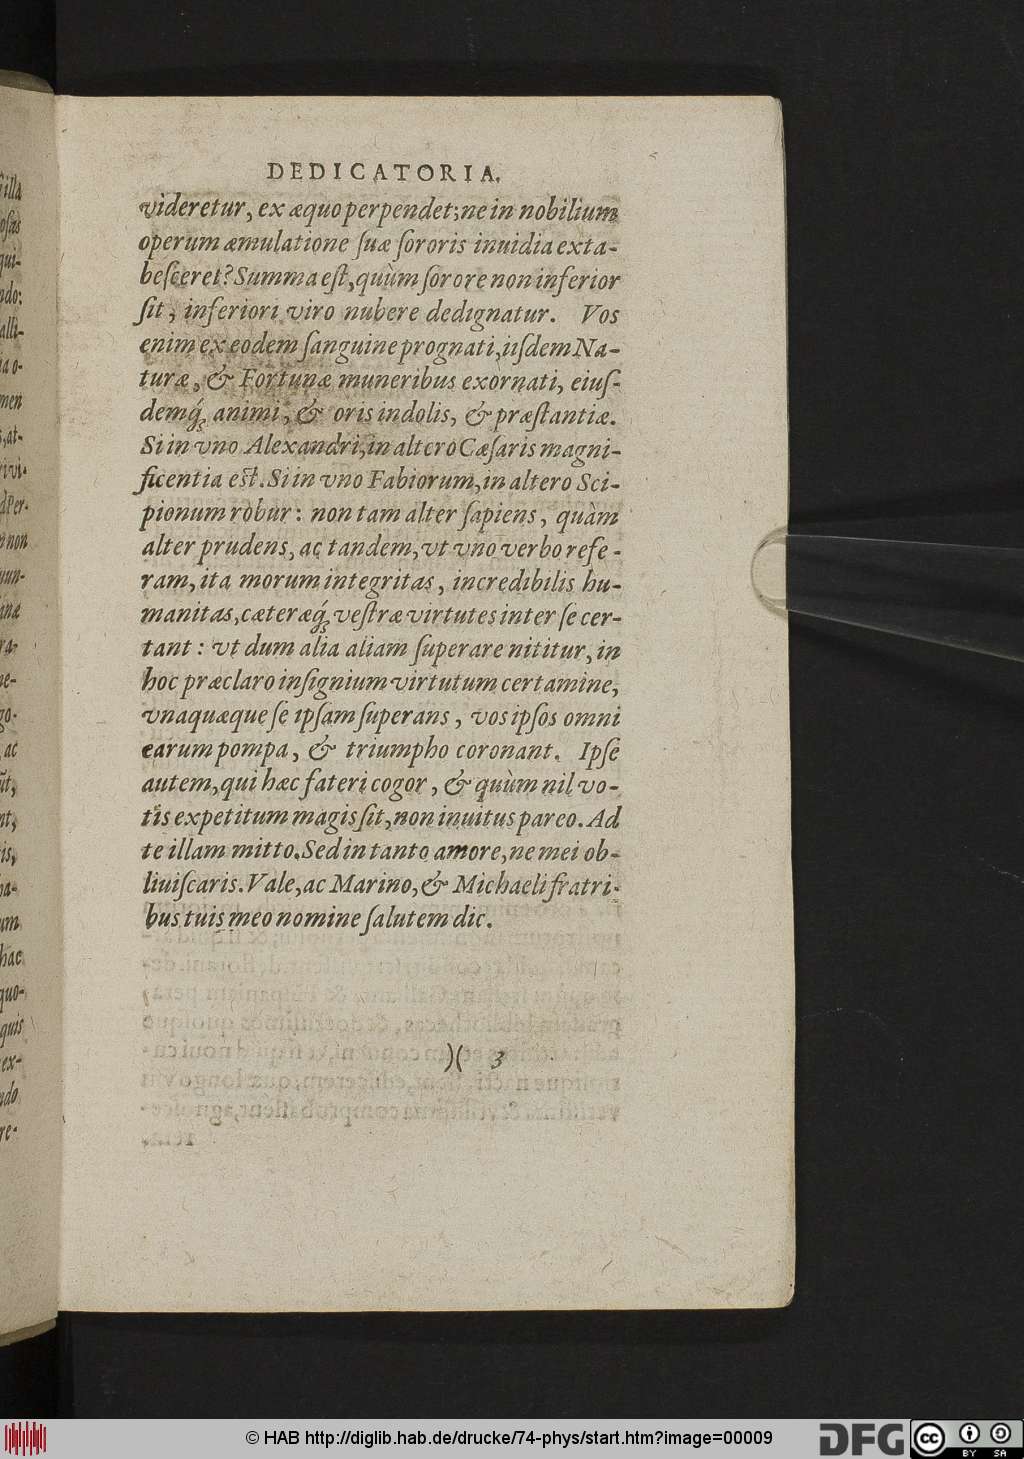 DEDICATORIA.
videretur, ex æquo perpendet; ne in nobilium
operum æmulatione ſuæ ſororis inuidia exta-
beſceret? Summa eſt, quùm ſorore non inferior
ſit, inferiori viro nubere dedignatur. Vos
enim ex eodem ſanguine prognati, iiſdem Na-
turæ, & Fortunæ muneribus exornati, eiuſ-
demq́; animi, & oris indolis, & præſtantiæ.
Si in vno Alexandri, in altero Cæſaris magni-
ficentia eſt. Si in vno Fabiorum, in altero Sci-
pionum robur: non tam alter ſapiens, quàm
alter prudens, ac tandem, vt vno verbo refe-
ram, ita morum integritas, incredibilis hu-
manitas, cæteræq́; veſtræ virtutes inter ſe cer-
tant: vt dum alia aliam ſuperare nititur, in
hoc præclaro inſignium virtutum certamine,
vnaquæque ſe ipſam ſuperans, vos ipſos omni
earum pompa, & triumpho coronant. Ipſe
autem, qui hæc fateri cogor, & quùm nil vo-
tis expetitum magis ſit, non inuitus pareo. Ad
te illam mitto. Sed in tanto amore, ne mei ob-
liuiſcaris. Vale, ac Marino, & Michaeli fratri-
bus tuis meo nomine ſalutem dic.
)( 3
© HAB http://diglib.hab.de/drucke/74-phys/start.htm?image=00009
DFG
cc BY SA